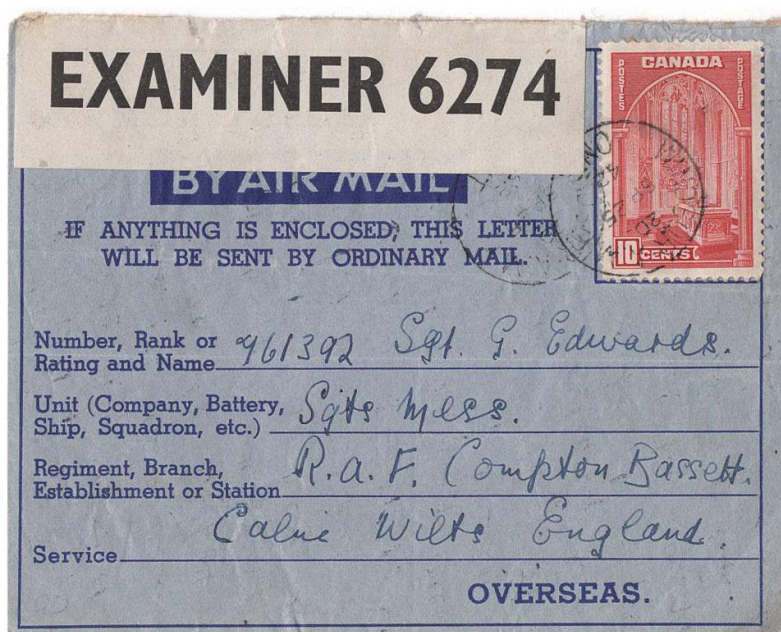 EXAMINER 6274
CANADA
POSTES
POSTAGE
10 CENTS
BY AIR MAIL
IF ANYTHING IS ENCLOSED, THIS LETTER
WILL BE SENT BY ORDINARY MAIL.
Number, Rank or
Rating and Name 961392 Sgt. G. Edwards.
Unit (Company, Battery,
Ship, Squadron, etc.) Sgts Mess.
Regiment, Branch,
Establishment or Station R.A.F. Compton Bassett.
Calne Wilts England.
Service
OVERSEAS.